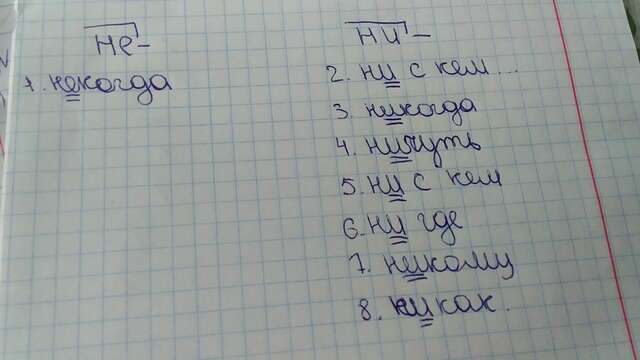 Не-
1. некогда
Ни-
2. ни с кем...
3. никогда
4. ничуть
5. ни с кем
6. ни где
7. никому
8. никак.